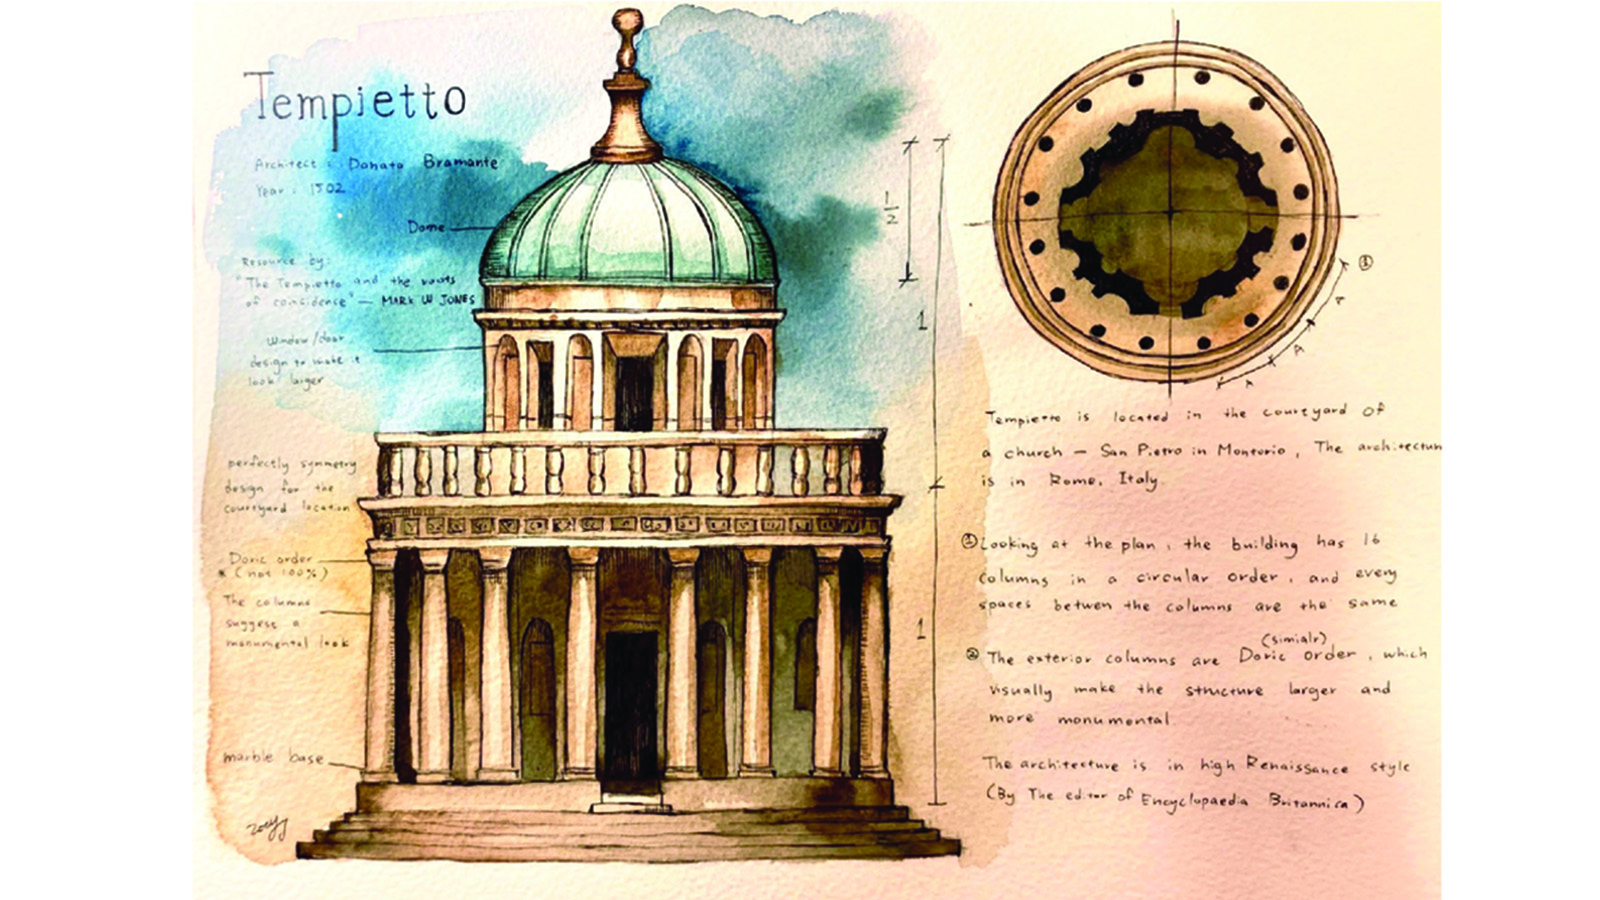 Tempietto
Architect : Donato Bramante
Year : 1502
Dome
Resource by:
"The Tempietto and the roots
of coincidence" — MARK W JONES
Window/door
design to make it
look larger
perfectly symmetry
design for the
courtyard location
Doric order
* (not 100%)
The columns
suggest a
monumental look
marble base
Zoeyy
1/2
1
1
①
A
A
A
Tempietto is located in the courtyard of
a church — San Pietro in Montorio, The architectur
is in Rome, Italy.
① Looking at the plan, the building has 16
columns in a circular order, and every
spaces betwen the columns are the same
(simialr)
② The exterior columns are Doric order, which
visually make the structure larger and
more monumental
The architecture is in high Renaissance style
(By The editor of Encyclopaedia Britannica)